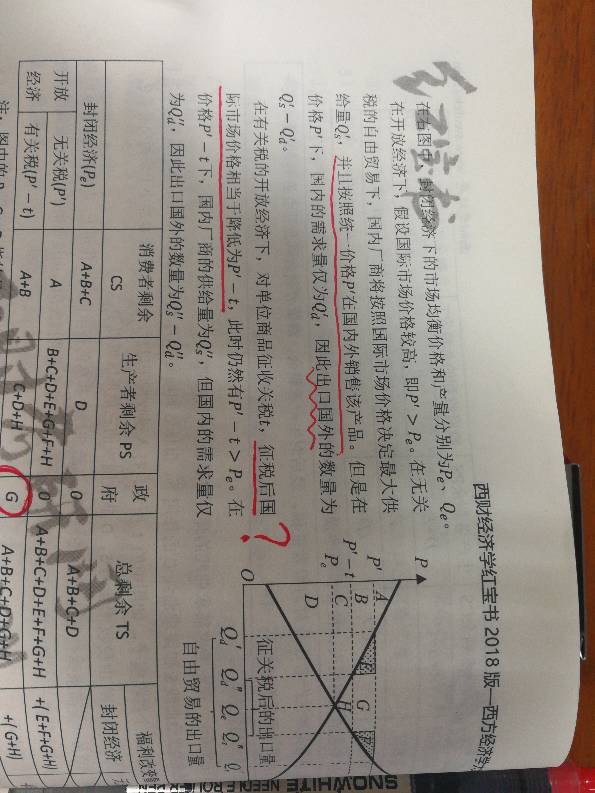 西财经济学红宝书 2018 版—西方经济学
在右图中，封闭经济下的市场均衡价格和产量分别为Pe、Qe。
在开放经济下，假设国际市场价格较高，即P' > Pe。在无关
税的自由贸易下，国内厂商将按照国际市场价格决定最大供
给量Q's，并且按照统一价格P'在国内外销售该产品。但是在
价格P'下，国内的需求量仅为Q'd，因此出口国外的数量为
Q's − Q'd。
在有关税的开放经济下，对单位商品征收关税t，征税后国
际市场价格相当于降低为P' − t，此时仍然有P' − t > Pe。在
价格P' − t下，国内厂商的供给量为Q''s，但国内的需求量仅
为Q''d，因此出口国外的数量为Q''s − Q''d。
?
P
P'
P' − t
Pe
O
A
B
C
D
G
H
Q'd Q''d Qe Q''s Q
征关税后的出口量
自由贸易的出口量
消费者剩余 CS 生产者剩余 PS 政府 总剩余 TS 福利改变 封闭经济
封闭经济(Pe) A+B+C D 0 A+B+C+D
开放经济 无关税(P') A B+C+D+E+G+F+H 0 A+B+C+D+E+F+G+H +(E+F+G+H)
有关税(P' − t) A+B C+D+H G A+B+C+D+G+H +(G+H)